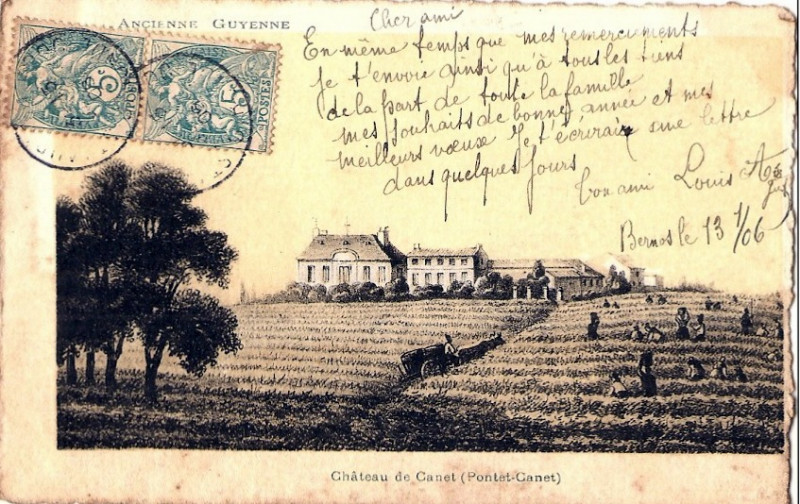 ANCIENNE GUYENNE
Cher ami
En même temps que mes remerciments
je t'envoie ainsi qu'à tous les tiens
de la part de toute la famille
mes souhaits de bonne année et mes
meilleurs voeux Je t'écrirai une lettre
dans quelques jours
Ton ami Louis
Bernos le 13 1/06
5 5
POSTES
Château de Canet (Pontet-Canet)